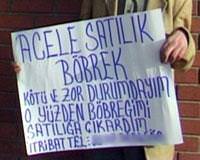 ACELE SATILIK
BÖBREK
KÖTÜ VE ZOR DURUMDAYIM
O YÜZDEN BÖBREĞİMİ
SATILIĞA ÇIKARDIM
İTRİBAT TEL: